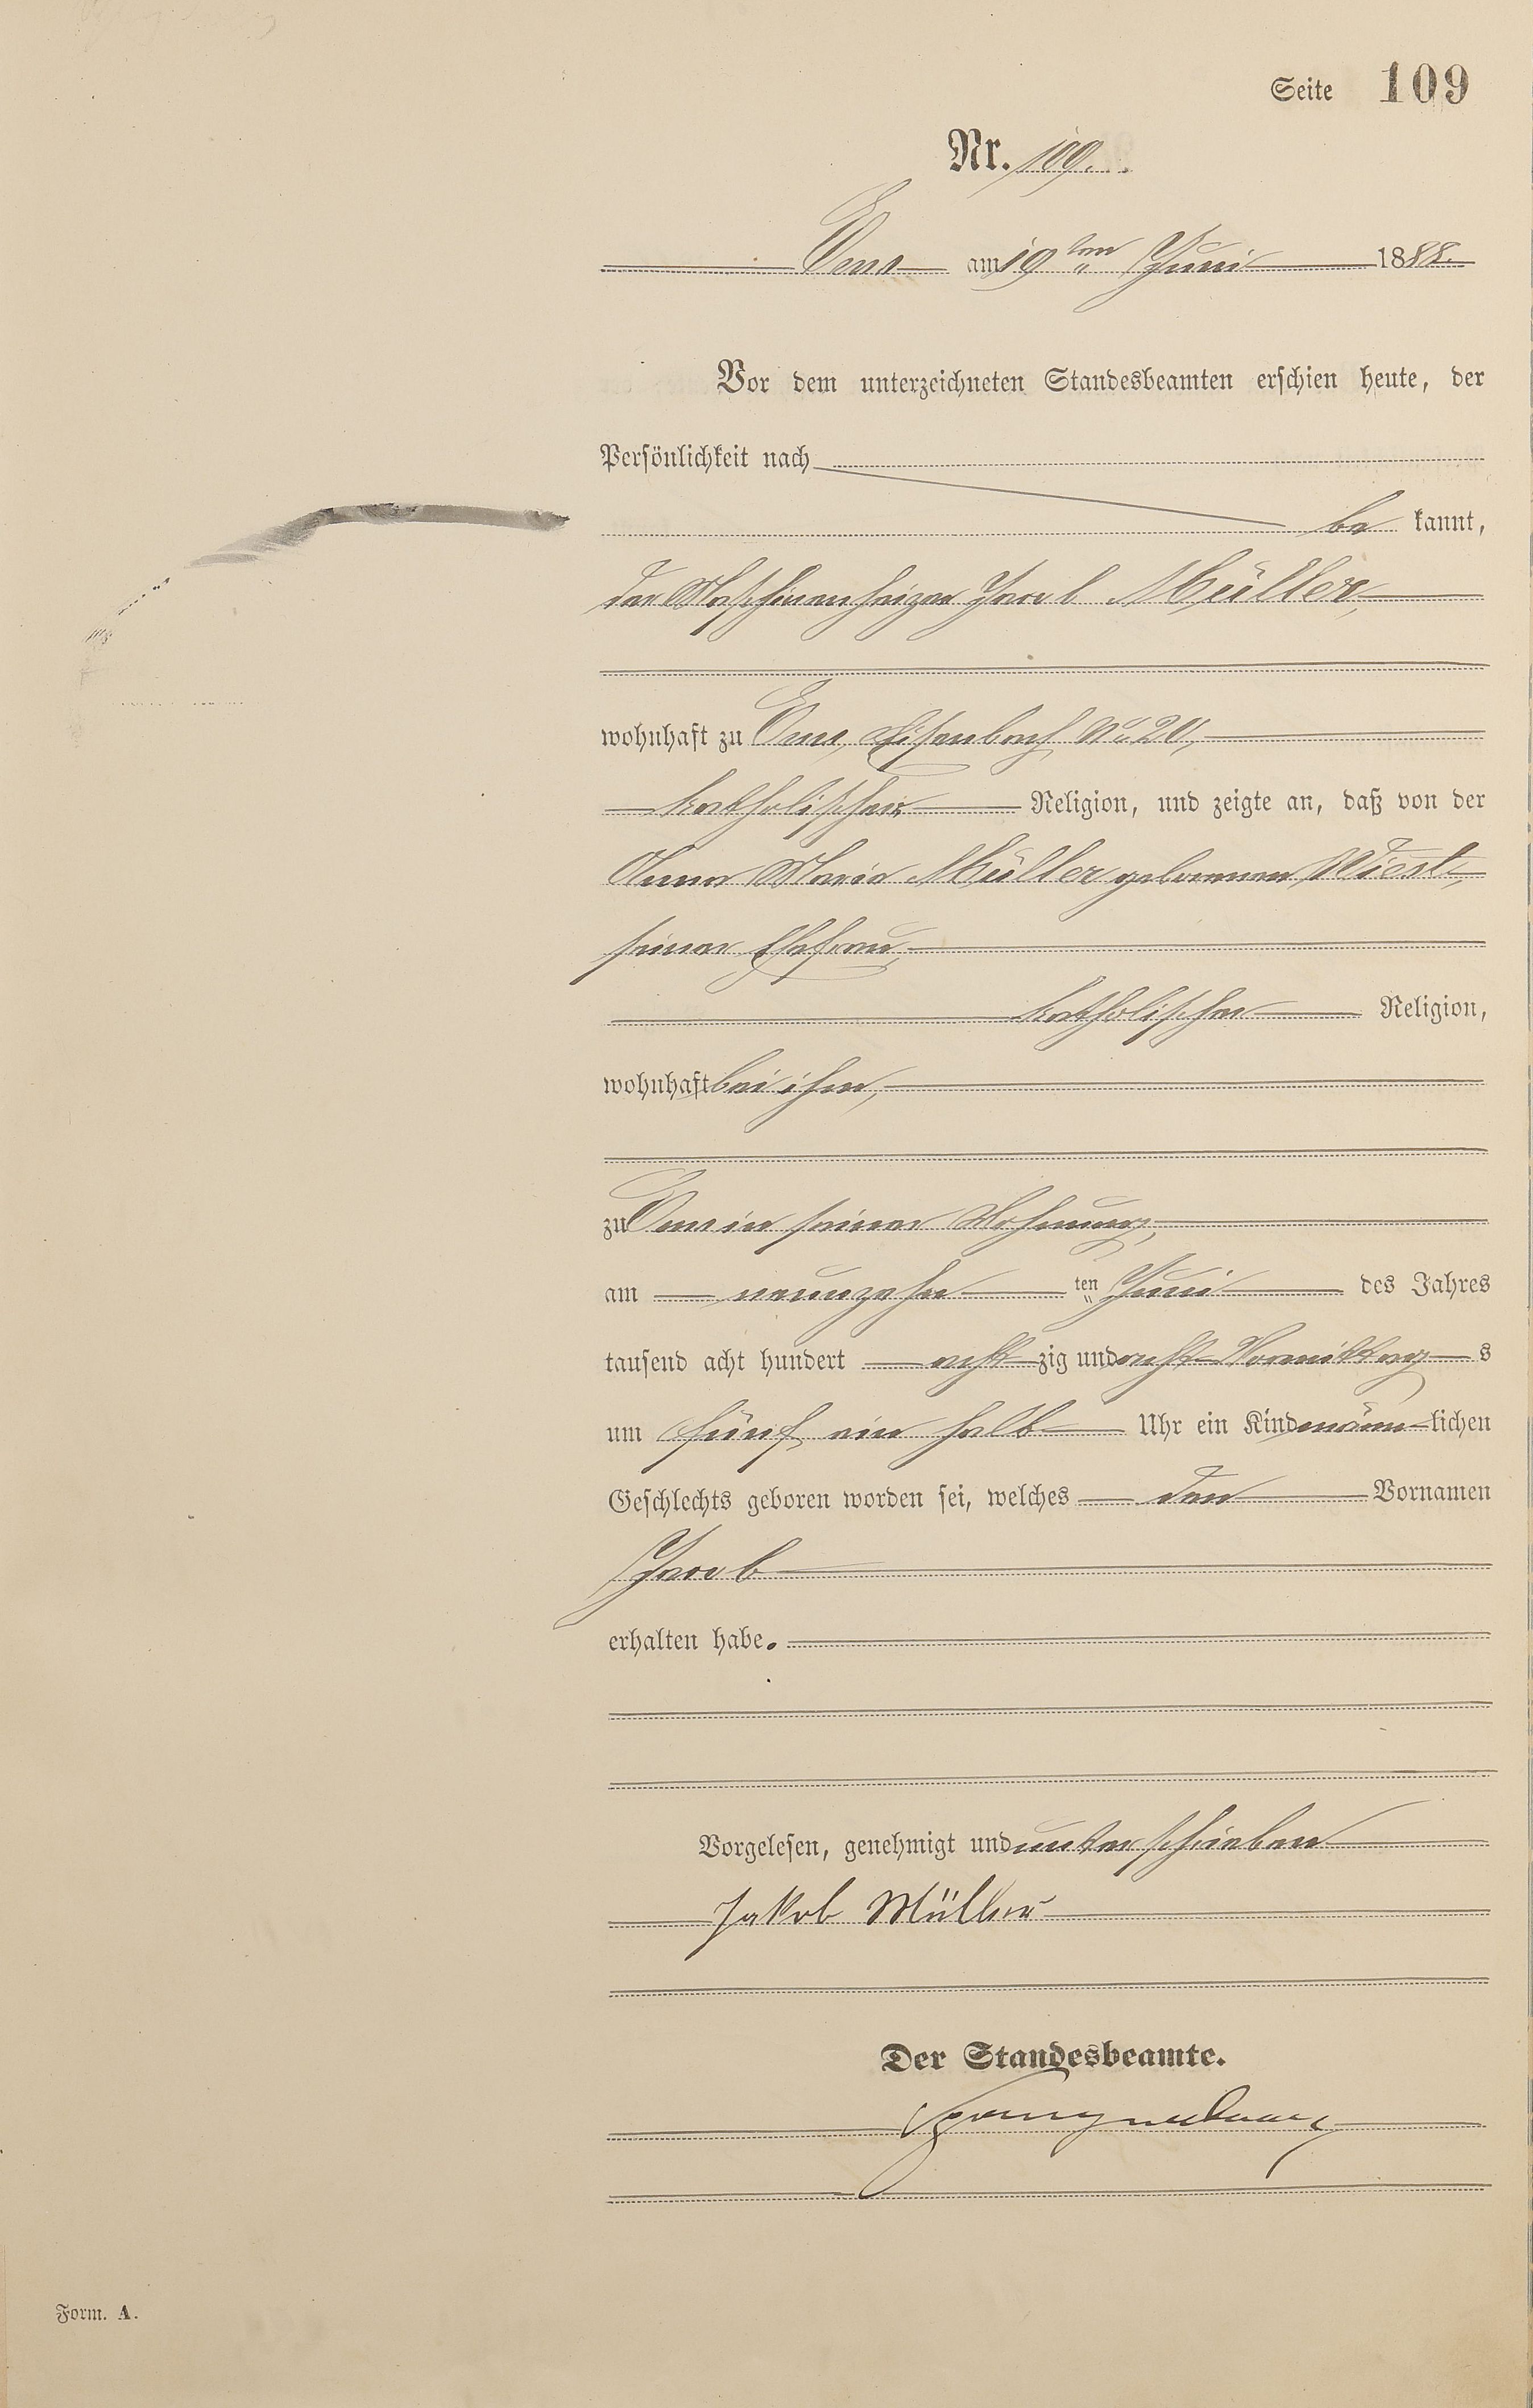 Seite 109
Nr. 109.
Ems am 19ten Juni 1888.
Vor dem unterzeichneten Standesbeamten erschien heute, der
Persönlichkeit nach
be kannt,
der Maschinenheizer Jacob Müller,
wohnhaft zu Ems, Eisenbach No 20,
katholischer Religion, und zeigte an, daß von der
Anna Maria Müller geborenen Wiest,
seiner Ehefrau,
katholischer Religion,
wohnhaft bei ihm,
zu Ems in seiner Wohnung,
am neunzehn ten Juni des Jahres
tausend acht hundert acht zig und acht Vormittag s
um fünf ein halb Uhr ein Kind männ lichen
Geschlechts geboren worden sei, welches den Vornamen
Jacob
erhalten habe.
Vorgelesen, genehmigt und unterschrieben
Jakob Müller
Der Standesbeamte.
Form. A.